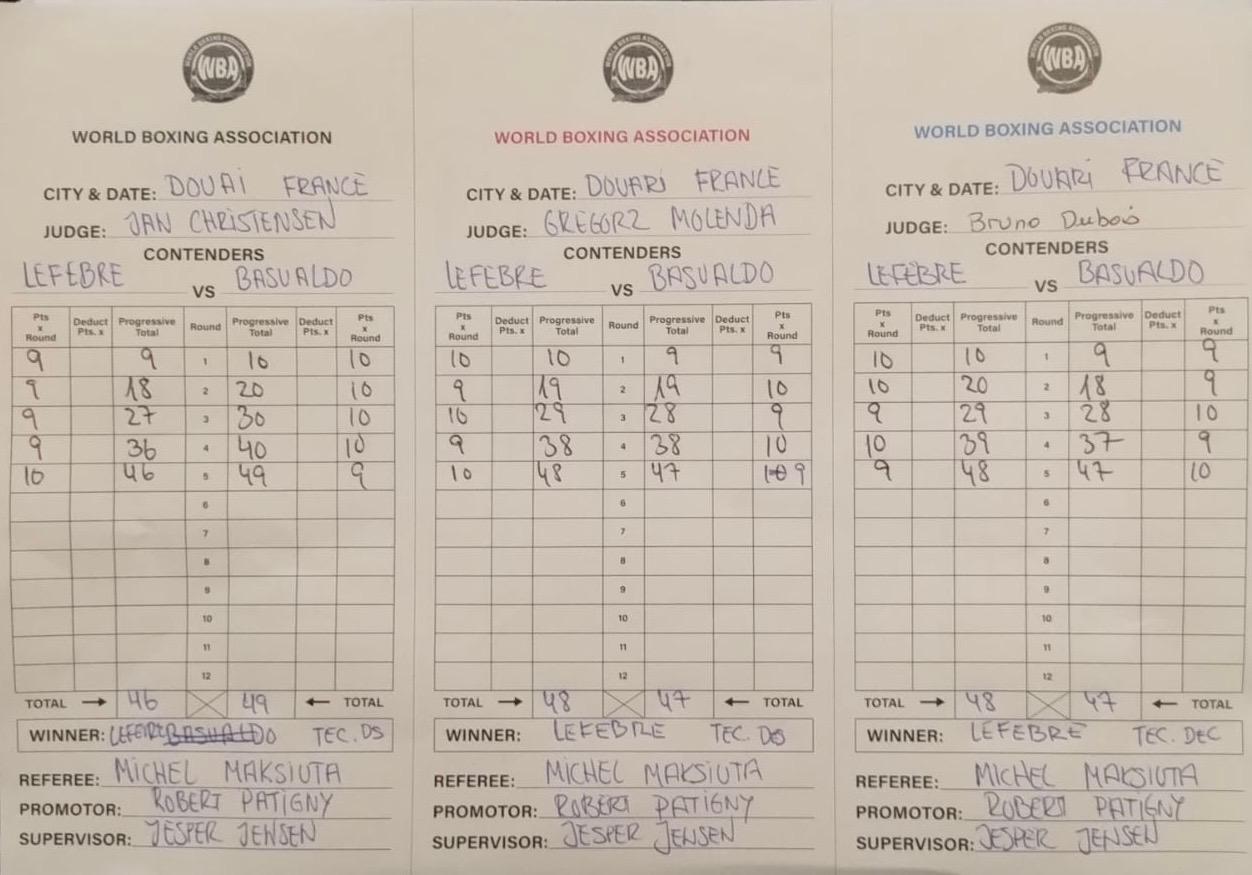 WORLD BOXING ASSOCIATION
WBA
WORLD BOXING ASSOCIATION
CITY & DATE: DOUAI FRANCE
JUDGE: JAN CHRISTENSEN
CONTENDERS
LEFEBRE VS BASUALDO
Pts x Round Deduct Pts. x Progressive Total Round Progressive Total Deduct Pts. x Pts x Round
9 9 1 10 10
9 18 2 20 10
9 27 3 30 10
9 36 4 40 10
10 46 5 49 9
6
7
8
9
10
11
12
TOTAL → 46 49 ← TOTAL
WINNER: TEC. DS
REFEREE: MICHEL MAKSIUTA
PROMOTOR: ROBERT PATIGNY
SUPERVISOR: JESPER JENSEN
WORLD BOXING ASSOCIATION
WBA
WORLD BOXING ASSOCIATION
CITY & DATE: DOUARI FRANCE
JUDGE: GREGORZ MOLENDA
CONTENDERS
LEFEBRE VS BASUALDO
Pts x Round Deduct Pts. x Progressive Total Round Progressive Total Deduct Pts. x Pts x Round
10 10 1 9 9
9 19 2 19 10
10 29 3 28 9
9 38 4 38 10
10 48 5 47 10 9
6
7
8
9
10
11
12
TOTAL → 48 47 ← TOTAL
WINNER: LEFEBRE TEC.
REFEREE: MICHEL MAKSIUTA
PROMOTOR: ROBERT PATIGNY
SUPERVISOR: JESPER JENSEN
WORLD BOXING ASSOCIATION
WBA
WORLD BOXING ASSOCIATION
CITY & DATE: DOUARI FRANCE
JUDGE: Bruno Dubois
CONTENDERS
LEFEBRE VS BASUALDO
Pts x Round Deduct Pts. x Progressive Total Round Progressive Total Deduct Pts. x Pts x Round
10 10 1 9 9
10 20 2 18 9
9 29 3 28 10
10 39 4 37 9
9 48 5 47 10
6
7
8
9
10
11
12
TOTAL → 48 47 ← TOTAL
WINNER: LEFEBRE TEC. DEC
REFEREE: MICHEL MAKSIUTA
PROMOTOR: ROBERT PATIGNY
SUPERVISOR: JESPER JENSEN